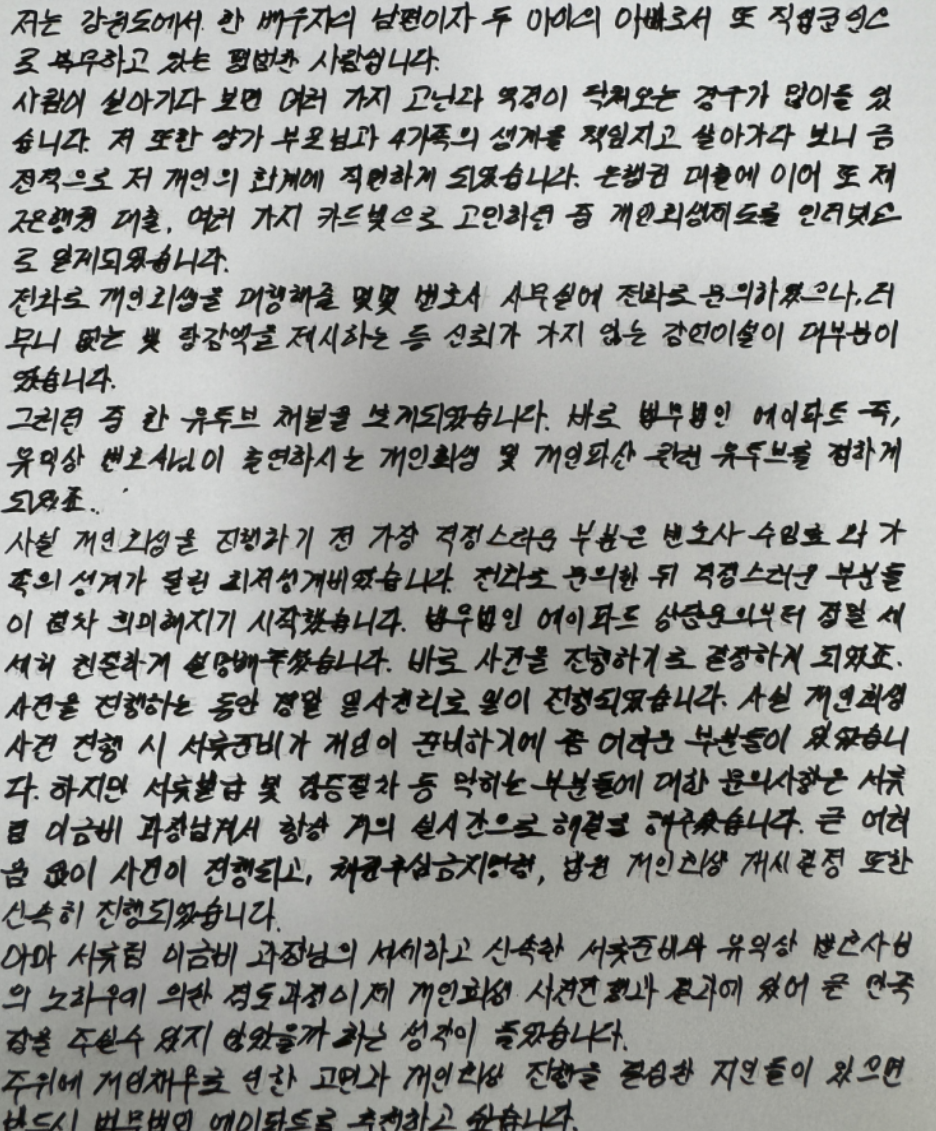 저는 강원도에서 한 배우자의 남편이자 두 아이의 아빠로서 또 직업군인으
로 복무하고 있는 평범한 사람입니다.
사람이 살아가다 보면 여러 가지 고난과 역경이 닥쳐오는 경우가 많이들 있
습니다. 저 또한 양가 부모님과 4가족의 생계를 책임지고 살아가다 보니 금
전적으로 저 개인의 한계에 직면하게 되었습니다. 은행권 대출에 이어 또 제
2은행권 대출, 여러 가지 카드빚으로 고민하던 중 개인회생제도를 인터넷으
로 알게되었습니다.
전화로 개인회생을 대행해줄 몇몇 변호사 사무실에 전화로 문의하였으나, 터
무니 없는 빚 탕감액을 제시하는 등 신뢰가 가지 않는 감언이설이 대부분이
였습니다.
그러던 중 한 유투브 채널을 보게되었습니다. 바로 법무법인 에이파트 즉,
유익상 변호사님이 출연하시는 개인회생 및 개인파산 관련 유투브를 접하게
되었죠.
사실 개인회생을 진행하기 전 가장 걱정스러운 부분은 변호사 수임료와 가
족의 생계가 달린 최저생계비였습니다. 전화로 문의한 뒤 걱정스러운 부분들
이 점차 희미해지기 시작했습니다. 법무법인 에이파트 상담문의부터 정말 세
세히 친절하게 설명해주셨습니다. 바로 사건을 진행하기로 결정하게 되었죠.
사건을 진행하는 동안 정말 일사천리로 일이 진행되었습니다. 사실 개인회생
사건 진행 시 서류준비가 개인이 준비하기에 좀 어려운 부분들이 있었습니
다. 하지만 서류발급 및 검증절차 등 막히는 부분들에 대한 문의사항은 서류
팀 이금비 과장님께서 항상 거의 실시간으로 해결해주셨습니다. 큰 어려
움 없이 사건이 진행되고, 채권추심금지명령, 법원 개인회생 개시결정 또한
신속히 진행되었습니다.
아마 서류팀 이금비 과장님의 세세하고 신속한 서류준비와 유익상 변호사님
의 노하우에 의한 검토과정이 제 개인회생 사건진행과 결과에 있어 큰 만족
감을 주실수 있지 않았을까 하는 생각이 들었습니다.
주위에 개인채무로 인한 고민과 개인회생 진행을 결심한 지인들이 있으면
반드시 법무법인 에이파트를 추천하고 싶습니다.